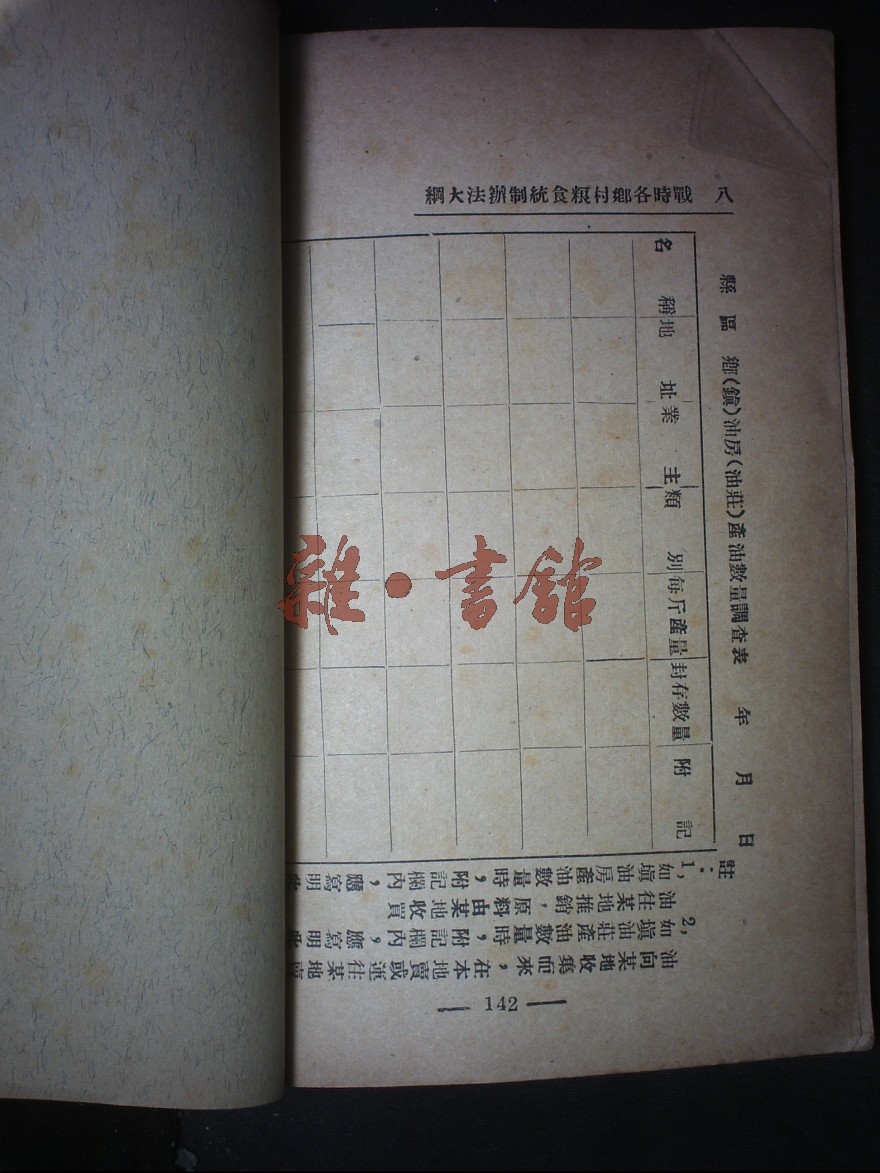 八 戰時各鄉村粮食統制辦法大綱
縣 區 鄉(鎭)油房(油莊)產油數量調查表 年 月 日
名稱 地址 業主 類別 每斤產量 封存數量 附記
註：
1,如塡油房產油數量時，附記欄內，應寫明此
油往某地推銷，原料由某地收買
2,如塡油莊產油數量時，附記欄內，應寫明此
油向某地收集而來，在本地賣或運往某地賣
— 142 —
雜·書館